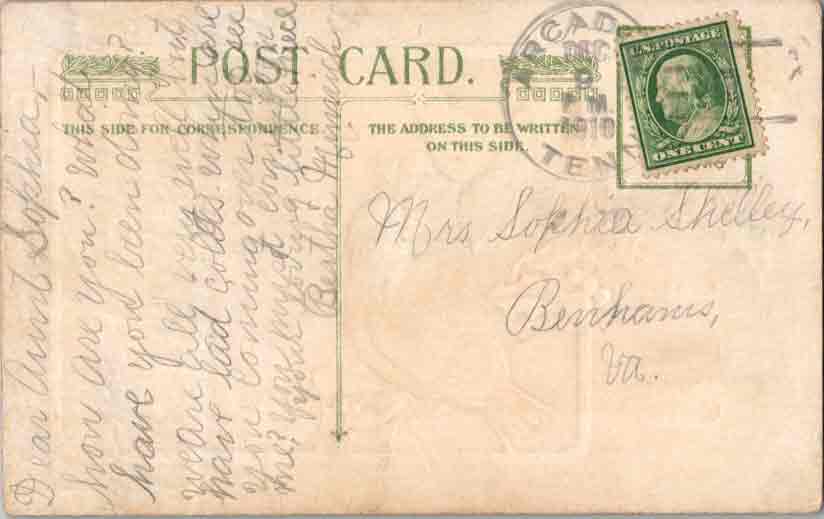 POST CARD.
THIS SIDE FOR CORRESPONDENCE
THE ADDRESS TO BE WRITTEN
ON THIS SIDE.
ARCAD
DEC
P.M.
1910
TENN
U.S. POSTAGE
ONE CENT
Mrs Sophia Shelley,
Benhams,
Va.
Dear Aunt Sophia,-
how are you? What
have you been doing?
we are all well but
have had colds. why are
you coming over to see
me?
Bertha